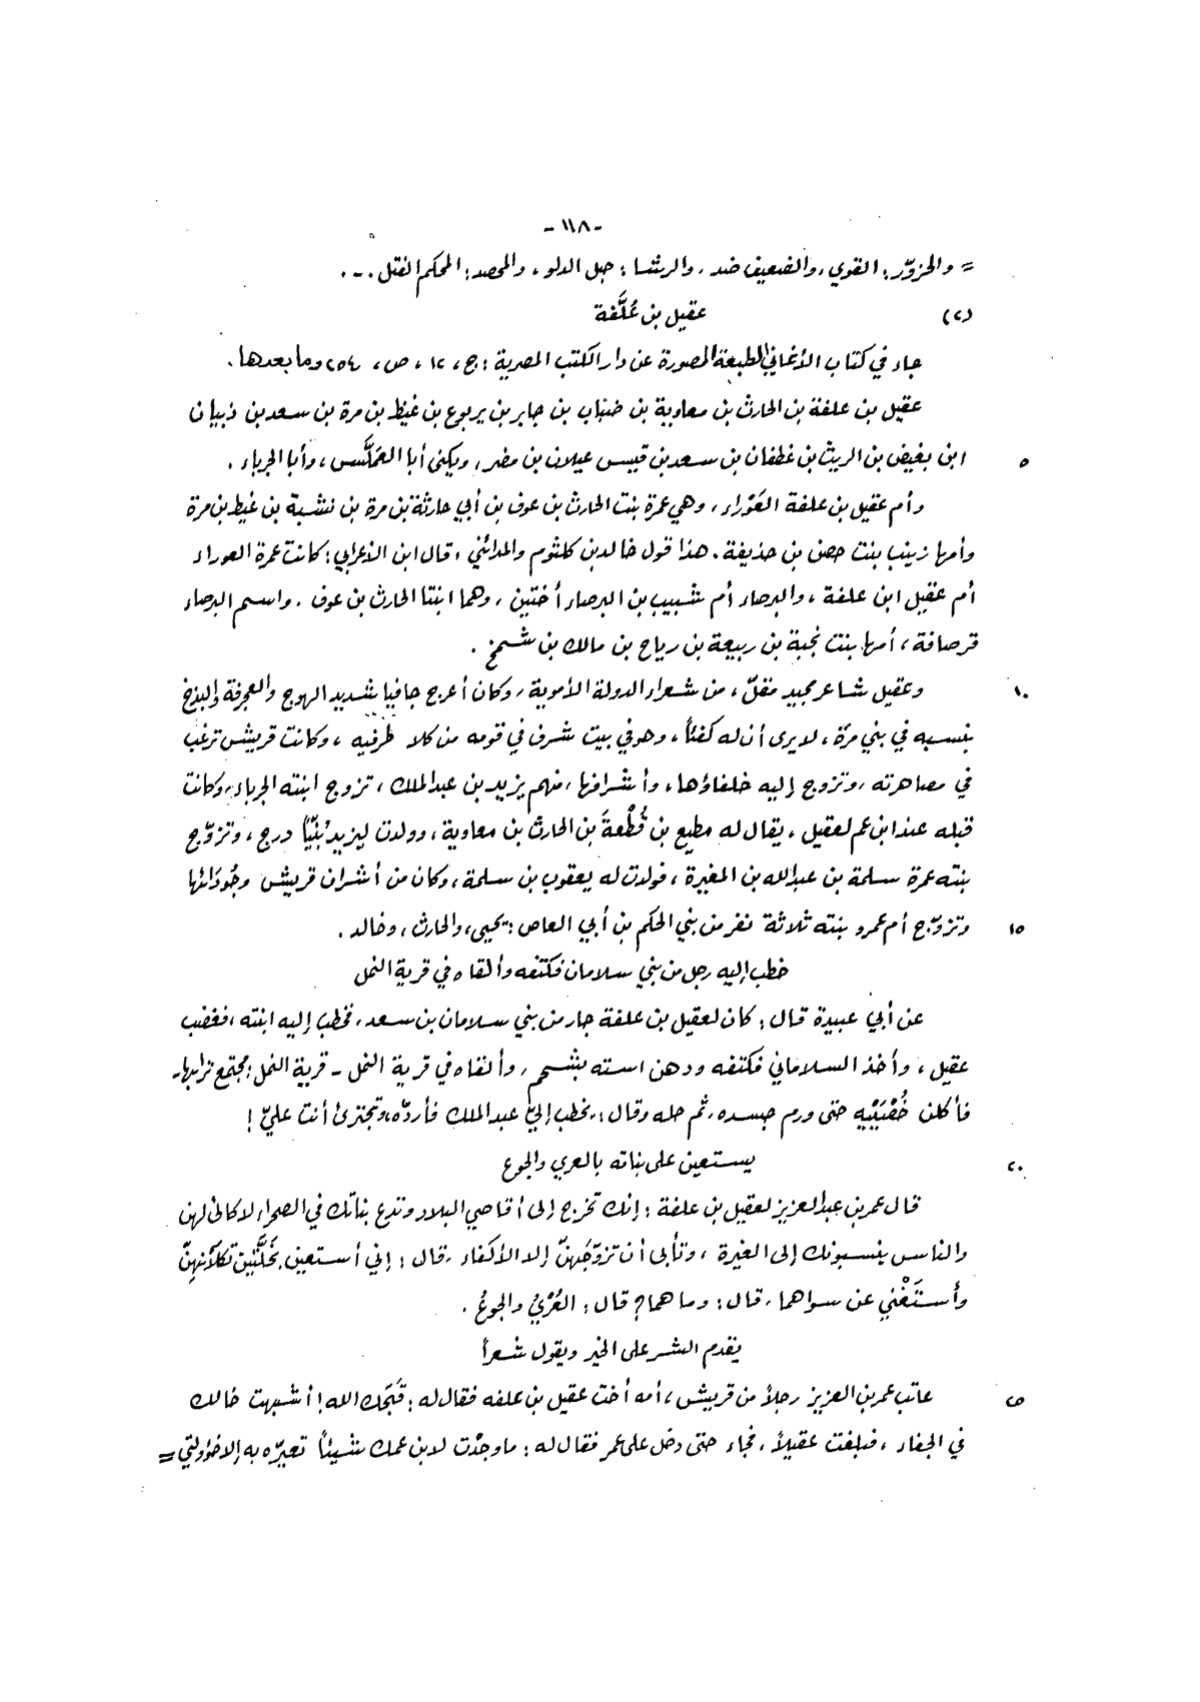 - ١١٨ -
= والحزوّر: القوي، والضعيف ضد، والرشا: حبل الدلو، والمحصد: المحكم الفتل . - .
(٢) عقيل بن عُلَّفة
جاء في كتاب الأغاني الطبعة المصورة عن دار الكتب المصرية: ج، ١٢، ص، ٢٥٤ وما بعدها.
عقيل بن علفة بن الحارث بن معاوية بن ضباب بن جابر بن يربوع بن غيظ بن مرة بن سعد بن ذبيان
٥ ابن بغيض بن الريث بن غطفان بن سعد بن قيس عيلان بن مضر، ويكنى أبا العَمَلَّس، وأبا الجرباء.
وأم عقيل بن علفة العَوْراء، وهي عمرة بنت الحارث بن عوف بن أبي حارثة بن مرة بن نشبة بن غيظ بن مرة
وأمها زينب بنت حصن بن حذيفة. هذا قول خالد بن كلثوم والمدائني، قال ابن الأعرابي: كانت عمرة العوراء
أم عقيل ابن علفة، والبرصاء أم شبيب بن البرصاء أختين، وهما ابنتا الحارث بن عوف. واسم البرصاء
قرصافة، أمها بنت نجبة بن ربيعة بن رياح بن مالك بن شمخ.
١٠ وعقيل شاعر مجيد مقلّ، من شعراء الدولة الأموية، وكان أعرج جافيا شديد الهوج والعجرفة والبذخ
بنسبه في بني مرّة، لا يرى أن له كفئاً، وهو في بيت شرف في قومه من كلا طرفيه، وكانت قريش ترغب
في مصاهرته، وتزوج إليه خلفاؤها، وأشرافها، منهم يزيد بن عبد الملك، تزوج ابنته الجرباء، وكانت
قبله عند ابن عم لعقيل، يقال له مطيع بن قُطْعةَ بن الحارث بن معاوية، وولدت ليزيد بُنَيّاً درج، وتزوّج
بنته عمرة سلمة بن عبد الله بن المغيرة، فولدت له يعقوب بن سلمة، وكان من أشراف قريش وجُودَائها
١٥ وتزوّج أم عمرو بنته ثلاثة نفر من بني الحكم بن أبي العاص: يحيى، والحارث، وخالد.
خطب إليه رجل من بني سلامان فكتفه وألقاه في قرية النمل
عن أبي عبيدة قال: كان لعقيل بن علفة جار من بني سلامان بن سعد، فخطب إليه ابنته، فغضب
عقيل، وأخذ السلاماني فكتفه ودهن استه بشحم، وألقاه في قرية النمل - قرية النمل: مجتمع ترابها -
فأكلن خُصْيَيْه حتى ورم جسده، ثم حله وقال: يخطب إليّ عبد الملك فأردّه، وتجترئ أنت عليّ!
٢٠ يستعين على بناته بالعري والجوع
قال عمر بن عبد العزيز لعقيل بن علفة: إنك تخرج إلى أقاصي البلاد وتدع بناتك في الصحراء لا كالئ لهن
والناس ينسبونك إلى الغيرة، وتأبى أن تزوّجهنّ إلا الأكفاء، قال: إني أستعين بخَلَّتين تكلآنهنّ
وأستَغْني عن سواهما، قال: وما هما؟ قال: العُرْيُ والجوعُ.
يقدم الشر على الخير ويقول شعراً
٢٥ عاتب عمر بن العزيز رجلاً من قريش، أمه أخت عقيل بن علفه فقال له: قَبَحك الله! أشبهت خالك
في الجفاء، فبلغت عقيلاً، فجاء حتى دخل على عمر فقال له: ما وجدْت لابن عمك شيئاً تعيّره به إلا خؤولتي =